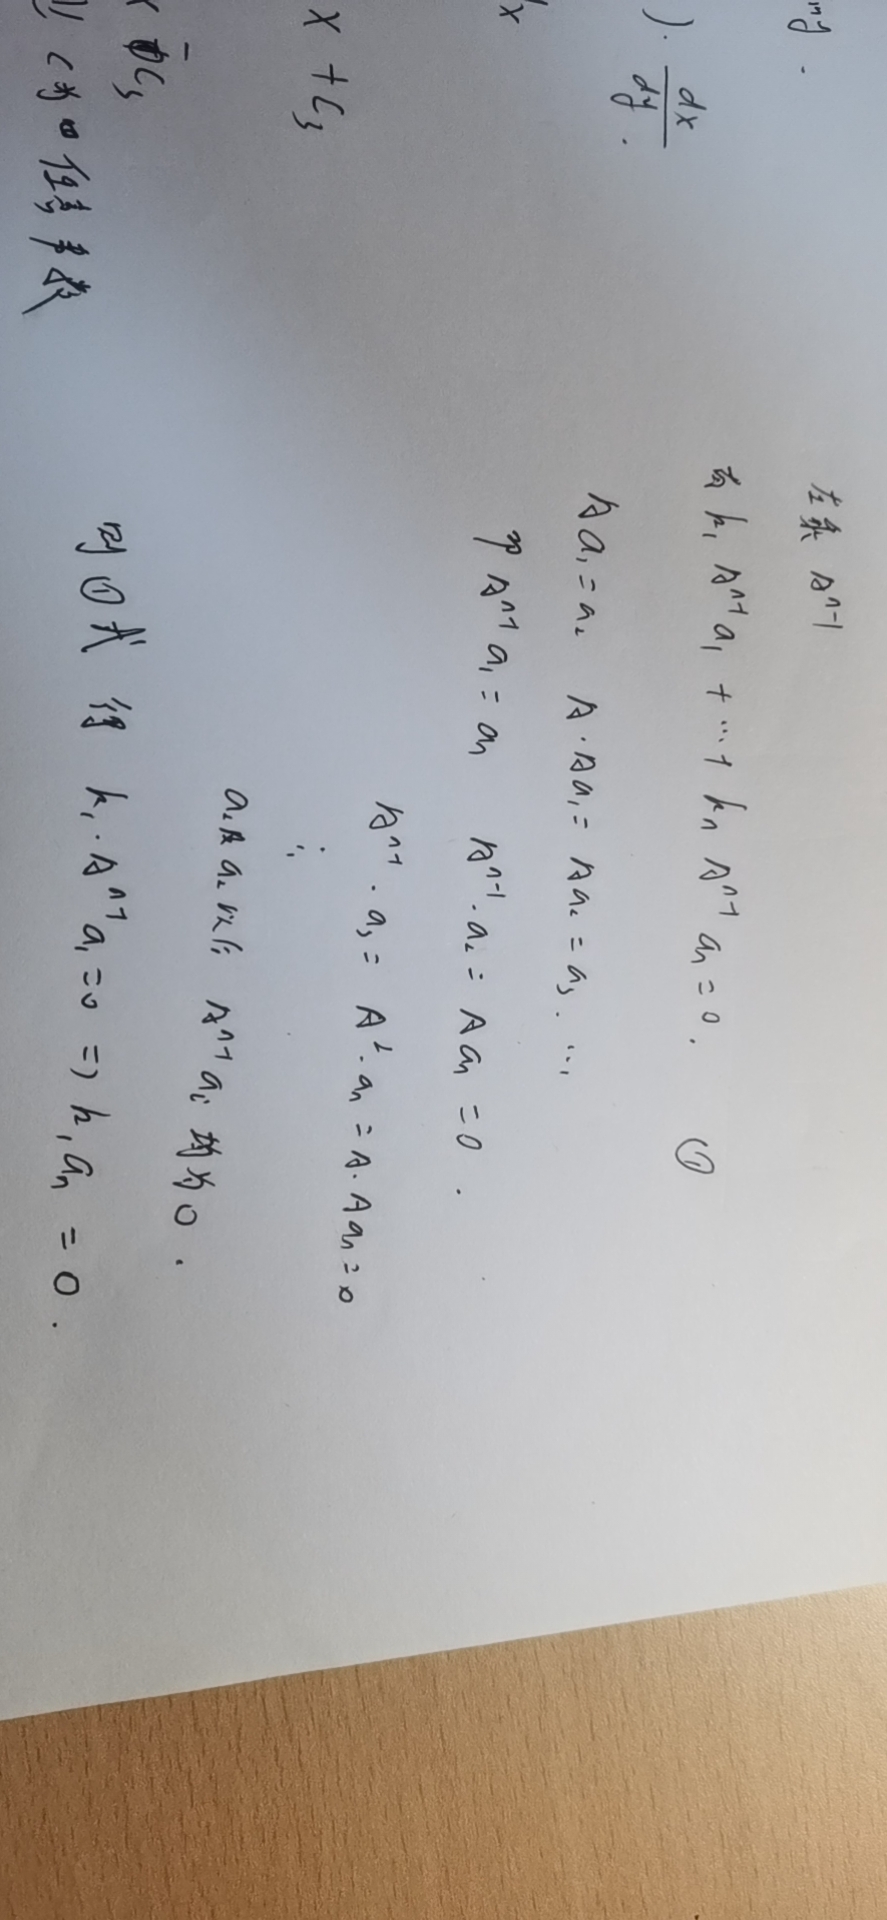 左乘 Aⁿ⁻¹
有 k₁ Aⁿ⁻¹ a₁ + … + kₙ Aⁿ⁻¹ aₙ = 0. ①
A a₁ = a₂ A · A a₁ = A a₂ = a₃ . …
Aⁿ⁻¹ a₁ = aₙ Aⁿ⁻¹ · a₂ = A aₙ = 0 .
Aⁿ⁻¹ · a₃ = A² · aₙ = A · A aₙ = 0
∴
a₂ 以后 Aⁿ⁻¹ aᵢ 均为 0 .
则 ① 式 得 k₁ · Aⁿ⁻¹ a₁ = 0 => k₁ aₙ = 0 .
) · dx
dy .
x
x + C₃
C₃
C 为 任意 常数